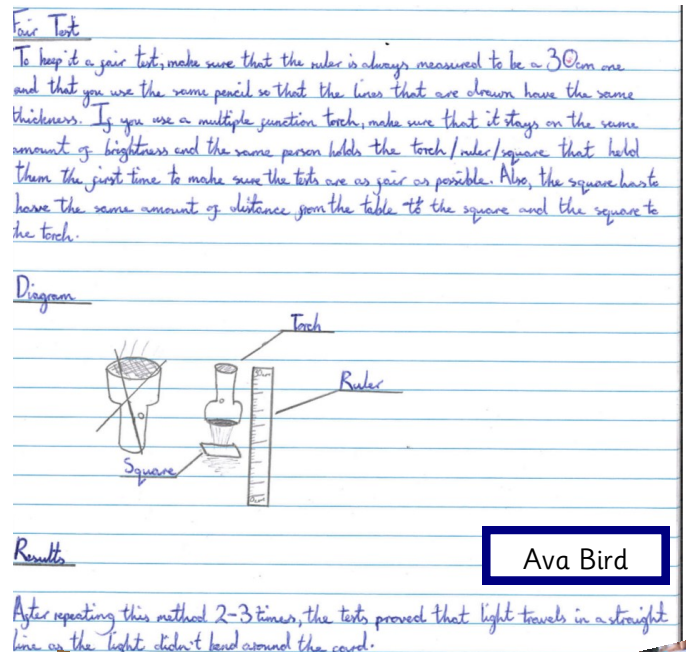 Fair Test
To keep it a fair test, make sure that the ruler is always measured to be a 30cm one
and that you use the same pencil so that the lines that are drawn have the same
thickness. If you use a multiple function torch, make sure that it stays on the same
amount of brightness and the same person holds the torch/ruler/square that held
them the first time to make sure the tests are as fair as possible. Also, the square has to
have the same amount of distance from the table to the square and the square to
the torch.
Diagram
Torch
30cm
Ruler
Square
0cm
Results
Ava Bird
After repeating this method 2-3 times, the tests proved that light travels in a straight
line as the light didn't bend around the card.